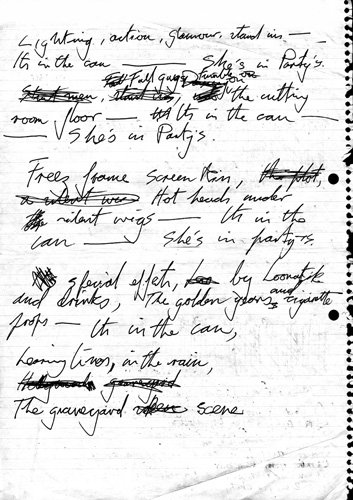 Lighting, action, glamour, stand ins —
Its in the can —— She's in Party's.
Fall guys tumble on
Stunt men, the cutting
room floor — Its in the can —
— She's in Party's.
Freeze frame screen kiss, the plot,
Hot heads under
silent wigs —— Its in the
can —— She's in party's.
special effects, by Loonatik
and drinks, The golden years and cigarette
props — Its in the can,
Learning lines, in the rain,
graveyard
The graveyard scene